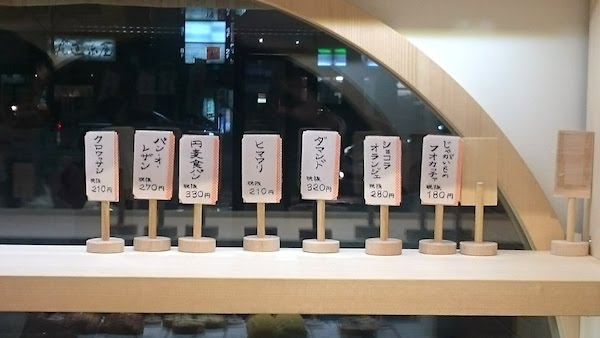 クロワッサン
税抜
210円
パン・オ・
レザン
税抜
270円
円麦食パン
税抜
330円
ヒマワリ
税抜
210円
ダマンド
税抜
320円
ショコラ
オランジュ
税抜
280円
じゃがいもの
フォカッチャ
税抜
180円